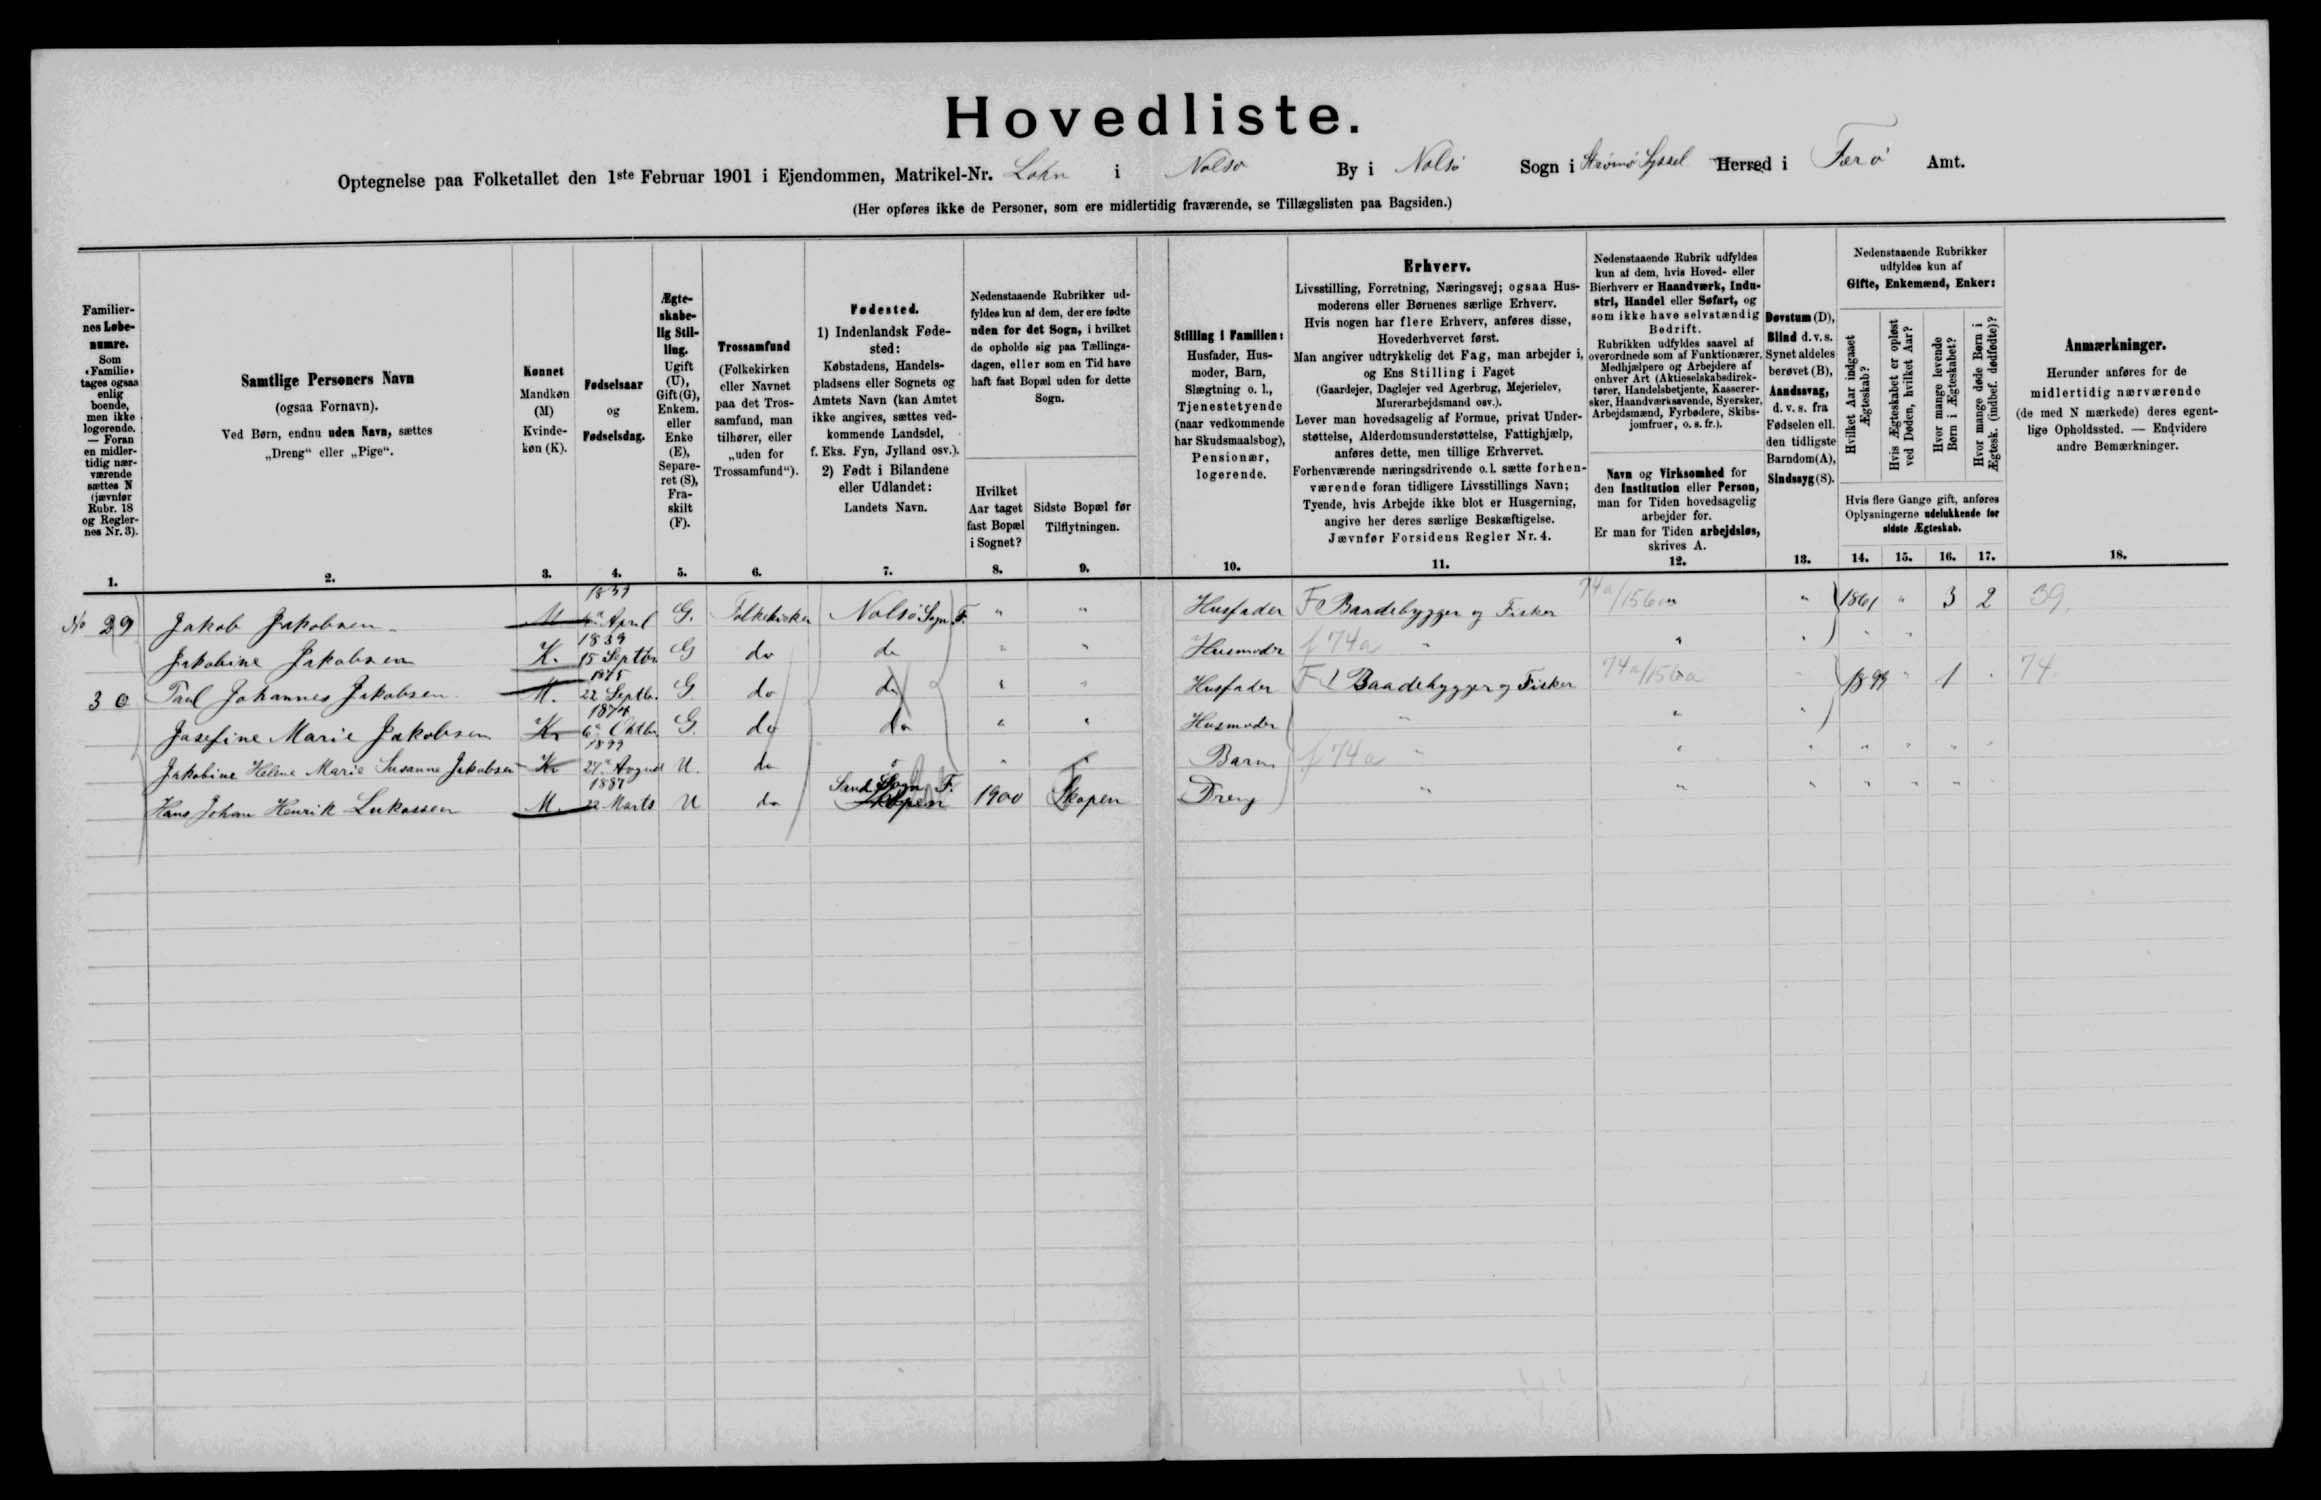 Hovedliste.
Optegnelse paa Folketallet den 1ste Februar 1901 i Ejendommen, Matrikel-Nr. i Nolsø By i Nolsø Sogn i Strømø Syssel Herred i Færø Amt.
(Her opføres ikke de Personer, som ere midlertidig fraværende, se Tillægslisten paa Bagsiden.)
Familier-
nes Løbe-
numre.
Som
„Familie“
tages ogsaa
enlig
boende,
men ikke
logerende.
— Foran
en midler-
tidig nær-
værende
sættes N
(jævnfør
Rubr. 18
og Regler-
nes Nr. 3).
1.
Samtlige Personers Navn
(ogsaa Fornavn).
Ved Børn, endnu uden Navn, sættes
„Dreng“ eller „Pige“.
2.
Kønnet
Mandkøn
(M)
Kvinde-
køn (K).
3.
Fødselsaar
og
Fødselsdag.
4.
Ægte-
skabe-
lig Stil-
ling.
Ugift
(U),
Gift (G),
Enkem.
eller
Enke
(E),
Separe-
ret (S),
Fra-
skilt
(F).
5.
Trossamfund
(Folkekirken
eller Navnet
paa det Tros-
samfund, man
tilhører, eller
„uden for
Trossamfund“).
6.
Fødested.
1) Indenlandsk Føde-
sted:
Købstadens, Handels-
pladsens eller Sognets og
Amtets Navn (kan Amtet
ikke angives, sættes ved-
kommende Landsdel,
f. Eks. Fyn, Jylland osv.).
2) Født i Bilandene
eller Udlandet:
Landets Navn.
7.
Nedenstaaende Rubrikker ud-
fyldes kun af dem, der ere fødte
uden for det Sogn, i hvilket
de opholde sig paa Tællings-
dagen, eller som en Tid have
haft fast Bopæl uden for dette
Sogn.
Hvilket
Aar taget
fast Bopæl
i Sognet?
8.
Sidste Bopæl før
Tilflytningen.
9.
Stilling i Familien:
Husfader, Hus-
moder, Barn,
Slægtning o. l.,
Tjenestetyende
(naar vedkommende
har Skudsmaalsbog),
Pensionær,
logerende.
10.
Erhverv.
Livsstilling, Forretning, Næringsvej; ogsaa Hus-
moderens eller Børnenes særlige Erhverv.
Hvis nogen har flere Erhverv, anføres disse,
Hovederhvervet først.
Man angiver udtrykkelig det Fag, man arbejder i,
og Ens Stilling i Faget
(Gaardejer, Daglejer ved Agerbrug, Mejerielev,
Murerarbejdsmand osv.).
Lever man hovedsagelig af Formue, privat Under-
støttelse, Alderdomsunderstøttelse, Fattighjælp,
anføres dette, men tillige Erhvervet.
Forhenværende næringsdrivende o. l. sætte forhen-
værende foran tidligere Livsstillings Navn;
Tyende, hvis Arbejde ikke blot er Husgerning,
angive her deres særlige Beskæftigelse.
Jævnfør Forsidens Regler Nr. 4.
11.
Nedenstaaende Rubrik udfyldes
kun af dem, hvis Hoved- eller
Bierhverv er Haandværk, Indu-
stri, Handel eller Søfart, og
som ikke have selvstændig
Bedrift.
Rubrikken udfyldes saavel af
overordnede som af Funktionærer,
Medhjælpere og Arbejdere af
enhver Art (Aktieselskabsdirek-
tører, Handelsbetjente, Kasserer-
sker, Haandværkssvende, Syersker,
Arbejdsmænd, Fyrbødere, Skibs-
jomfruer, o. s. fr.).
Navn og Virksomhed for
den Institution eller Person,
man for Tiden hovedsagelig
arbejder for.
Er man for Tiden arbejdsløs,
skrives A.
12.
Døvstum (D),
Blind d. v. s.
Synet aldeles
berøvet (B),
Aandssvag,
d. v. s. fra
Fødselen ell.
den tidligste
Barndom (A),
Sindssyg (S).
13.
Nedenstaaende Rubrikker
udfyldes kun af
Gifte, Enkemænd, Enker:
Hvilket Aar indgaaet
Ægteskab?
Hvis Ægteskabet er opløst
ved Døden, hvilket Aar?
Hvor mange levende
Børn i Ægteskabet?
Hvor mange døde Børn i
Ægtesk. (indbef. dødfødte)?
Hvis flere Gange gift, anføres
Oplysningerne udelukkende for
sidste Ægteskab.
14. 15. 16. 17.
Anmærkninger.
Herunder anføres for de
midlertidig nærværende
(de med N mærkede) deres egent-
lige Opholdssted. — Endvidere
andre Bemærkninger.
18.
No 29 Jakob Jakobsen M April G. Folkekirken Nolsø Sogn F. " " Husfader F Baadebygger og Fisker 74a/156a " 1861 " 3 2 39
Jakobine Jakobsen K. 1839 15 Septbr G do do " " Husmoder f 74a " " " " "
30 Paul Johannes Jakobsen M. 1875 22 Septbr. G. do do " " Husfader F Baadebygger og Fisker 74a/156a " 1899 " 1 " 74
Josefine Marie Jakobsen K. 1874 6 Oktbr G. do do " " Husmoder " " "
Jakobine Helene Marie Susanne Jakobsen K. 1899 27 August U. do " " Barn f 74a " " " " " " "
Hans Johan Henrik Lukassen M. 1887 22 Marts U do Sand Sogn F. Skopen 1900 Skopen Dreng " " " " " " "